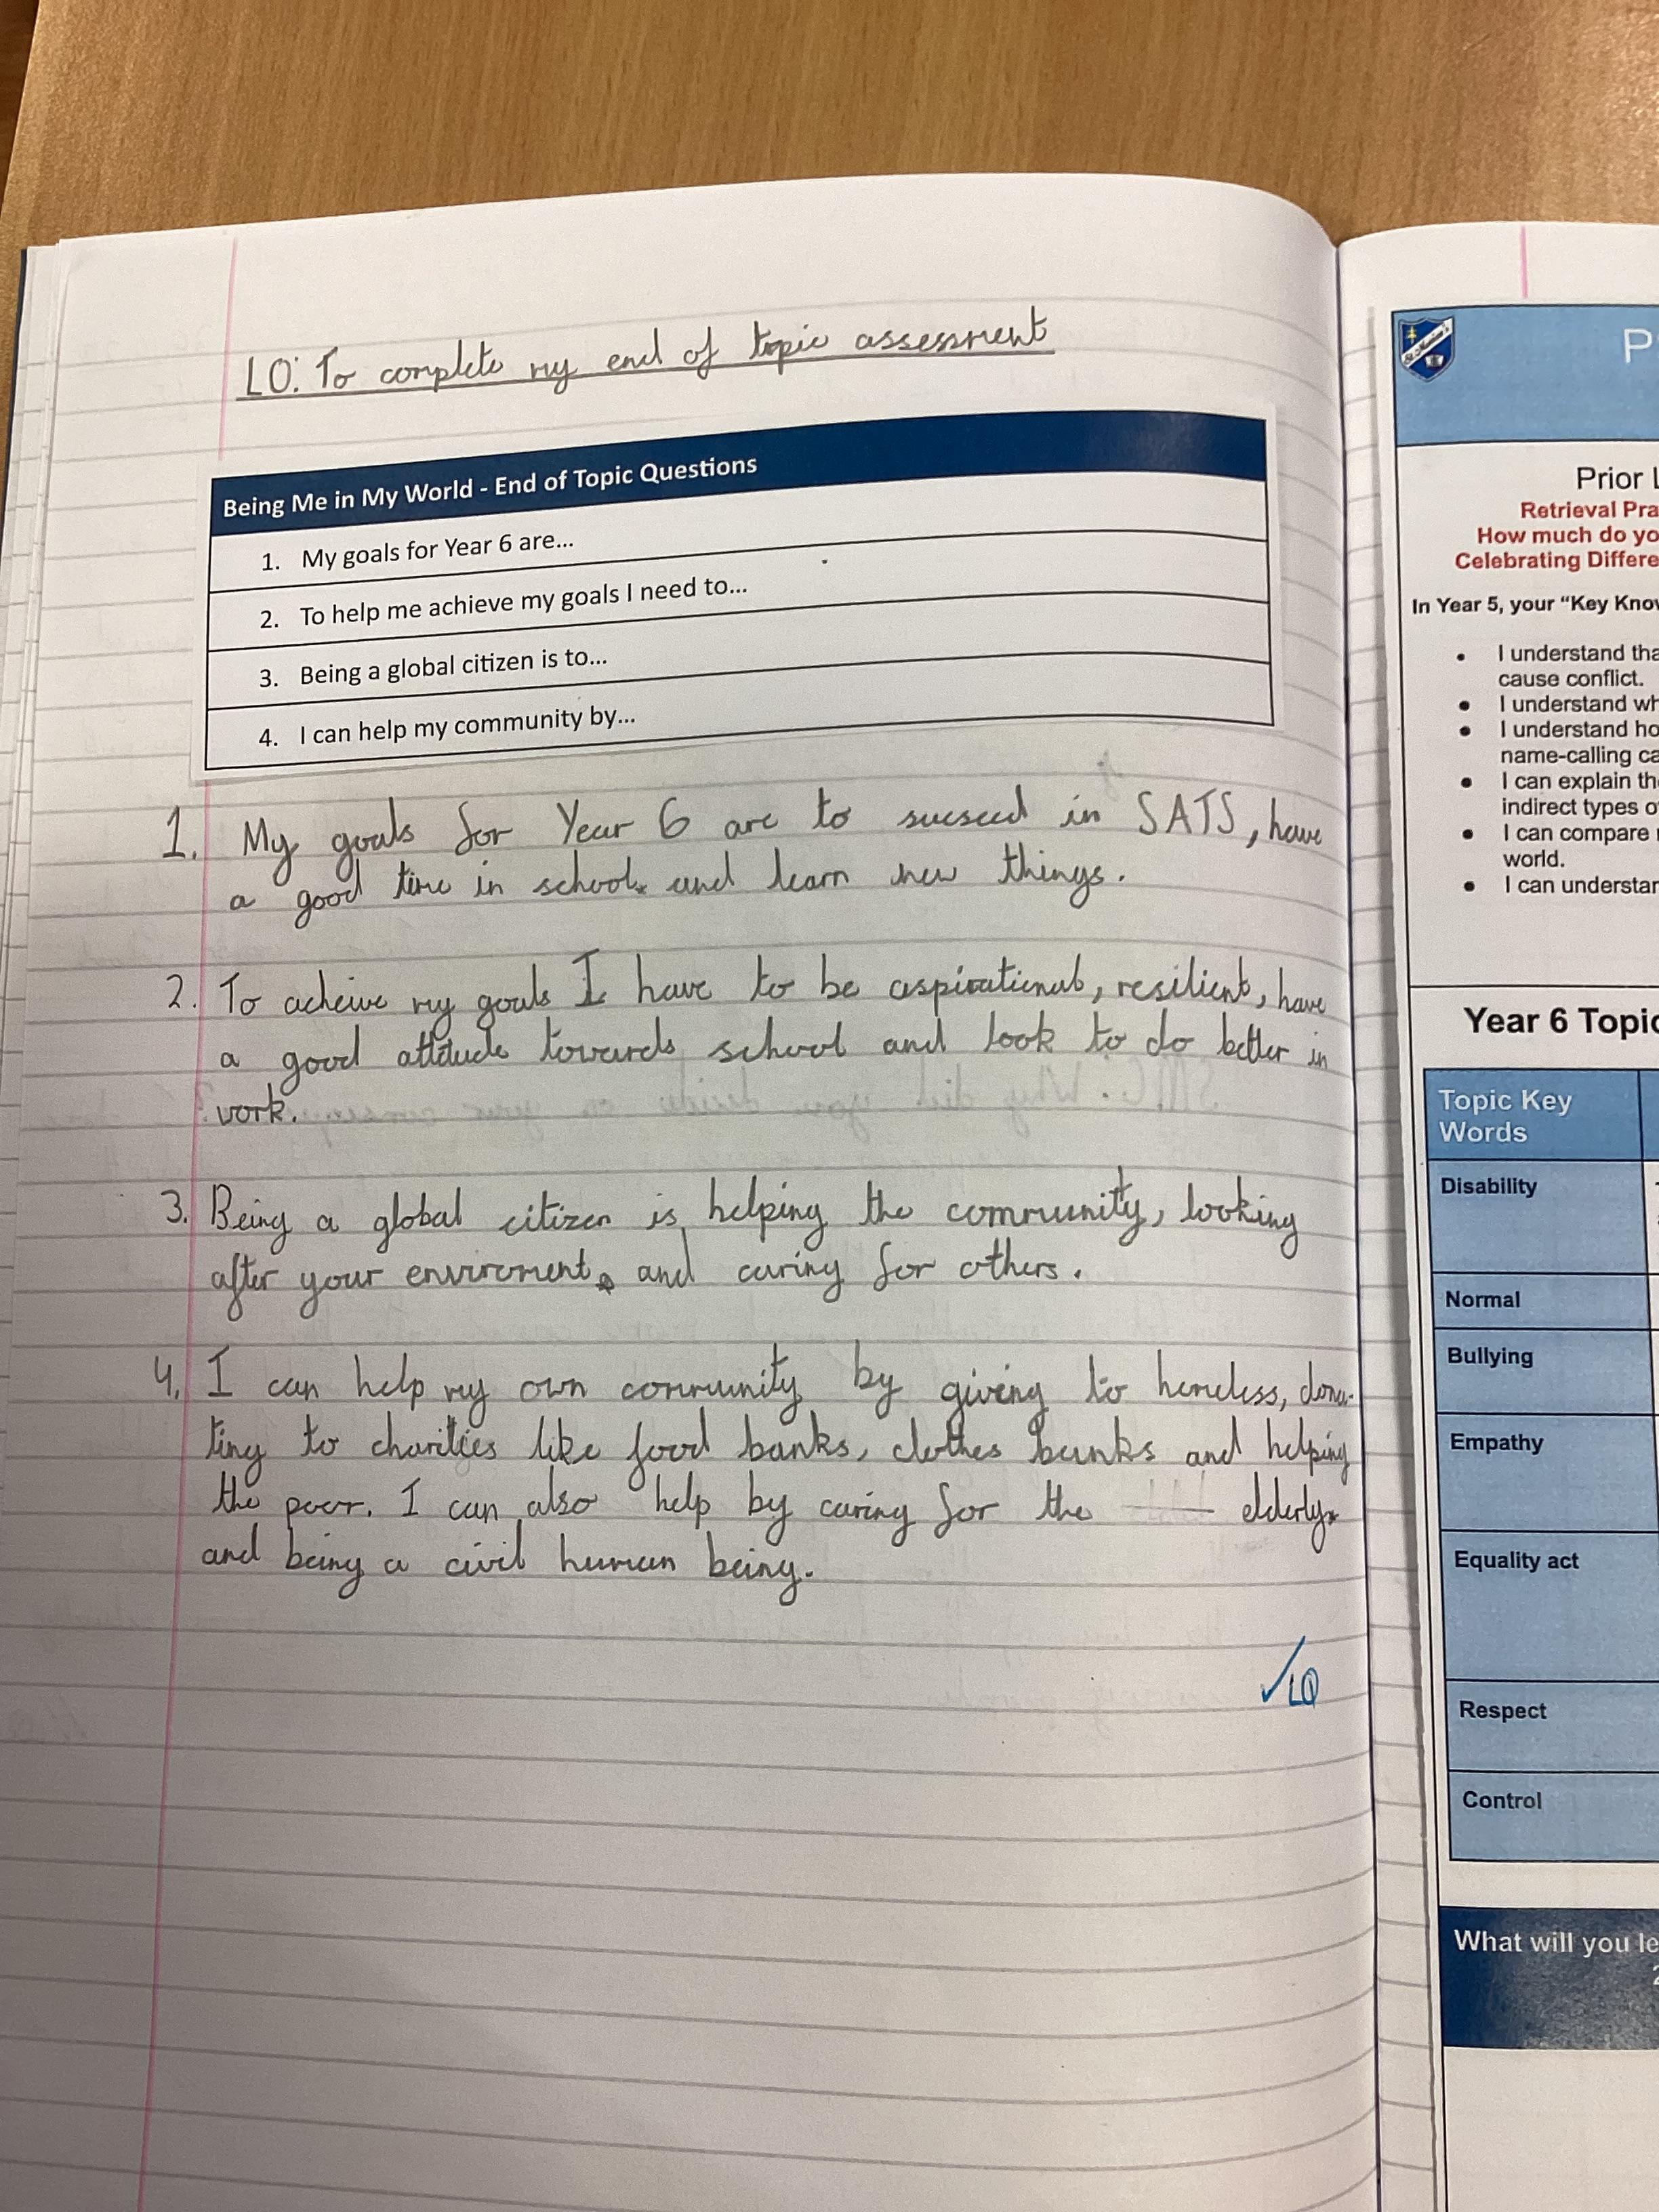 LO: To complete my end of topic assessment
Being Me in My World - End of Topic Questions
1. My goals for Year 6 are...
2. To help me achieve my goals I need to...
3. Being a global citizen is to...
4. I can help my community by...
1. My goals for Year 6 are to sucseed in SATS, have
a good time in school and learn new things.
2. To acheive my goals I have to be aspirational, resilient, have
a good attitude towards school and look to do better in
work.
3. Being a global citizen is helping the community, looking
after your enviroment and caring for others.
4. I can help my own community by giving to homeless, dona-
ting to charities like food banks, clothes banks and helping
the poor. I can also help by caring for the elderly
and being a civil human being.
✓LQ
P
Prior L
Retrieval Pra
How much do yo
Celebrating Differe
In Year 5, your "Key Know
• I understand tha
cause conflict.
• I understand wh
• I understand ho
name-calling ca
• I can explain th
indirect types o
• I can compare
world.
• I can understan
Year 6 Topic
Topic Key
Words
Disability
Normal
Bullying
Empathy
Equality act
Respect
Control
What will you le